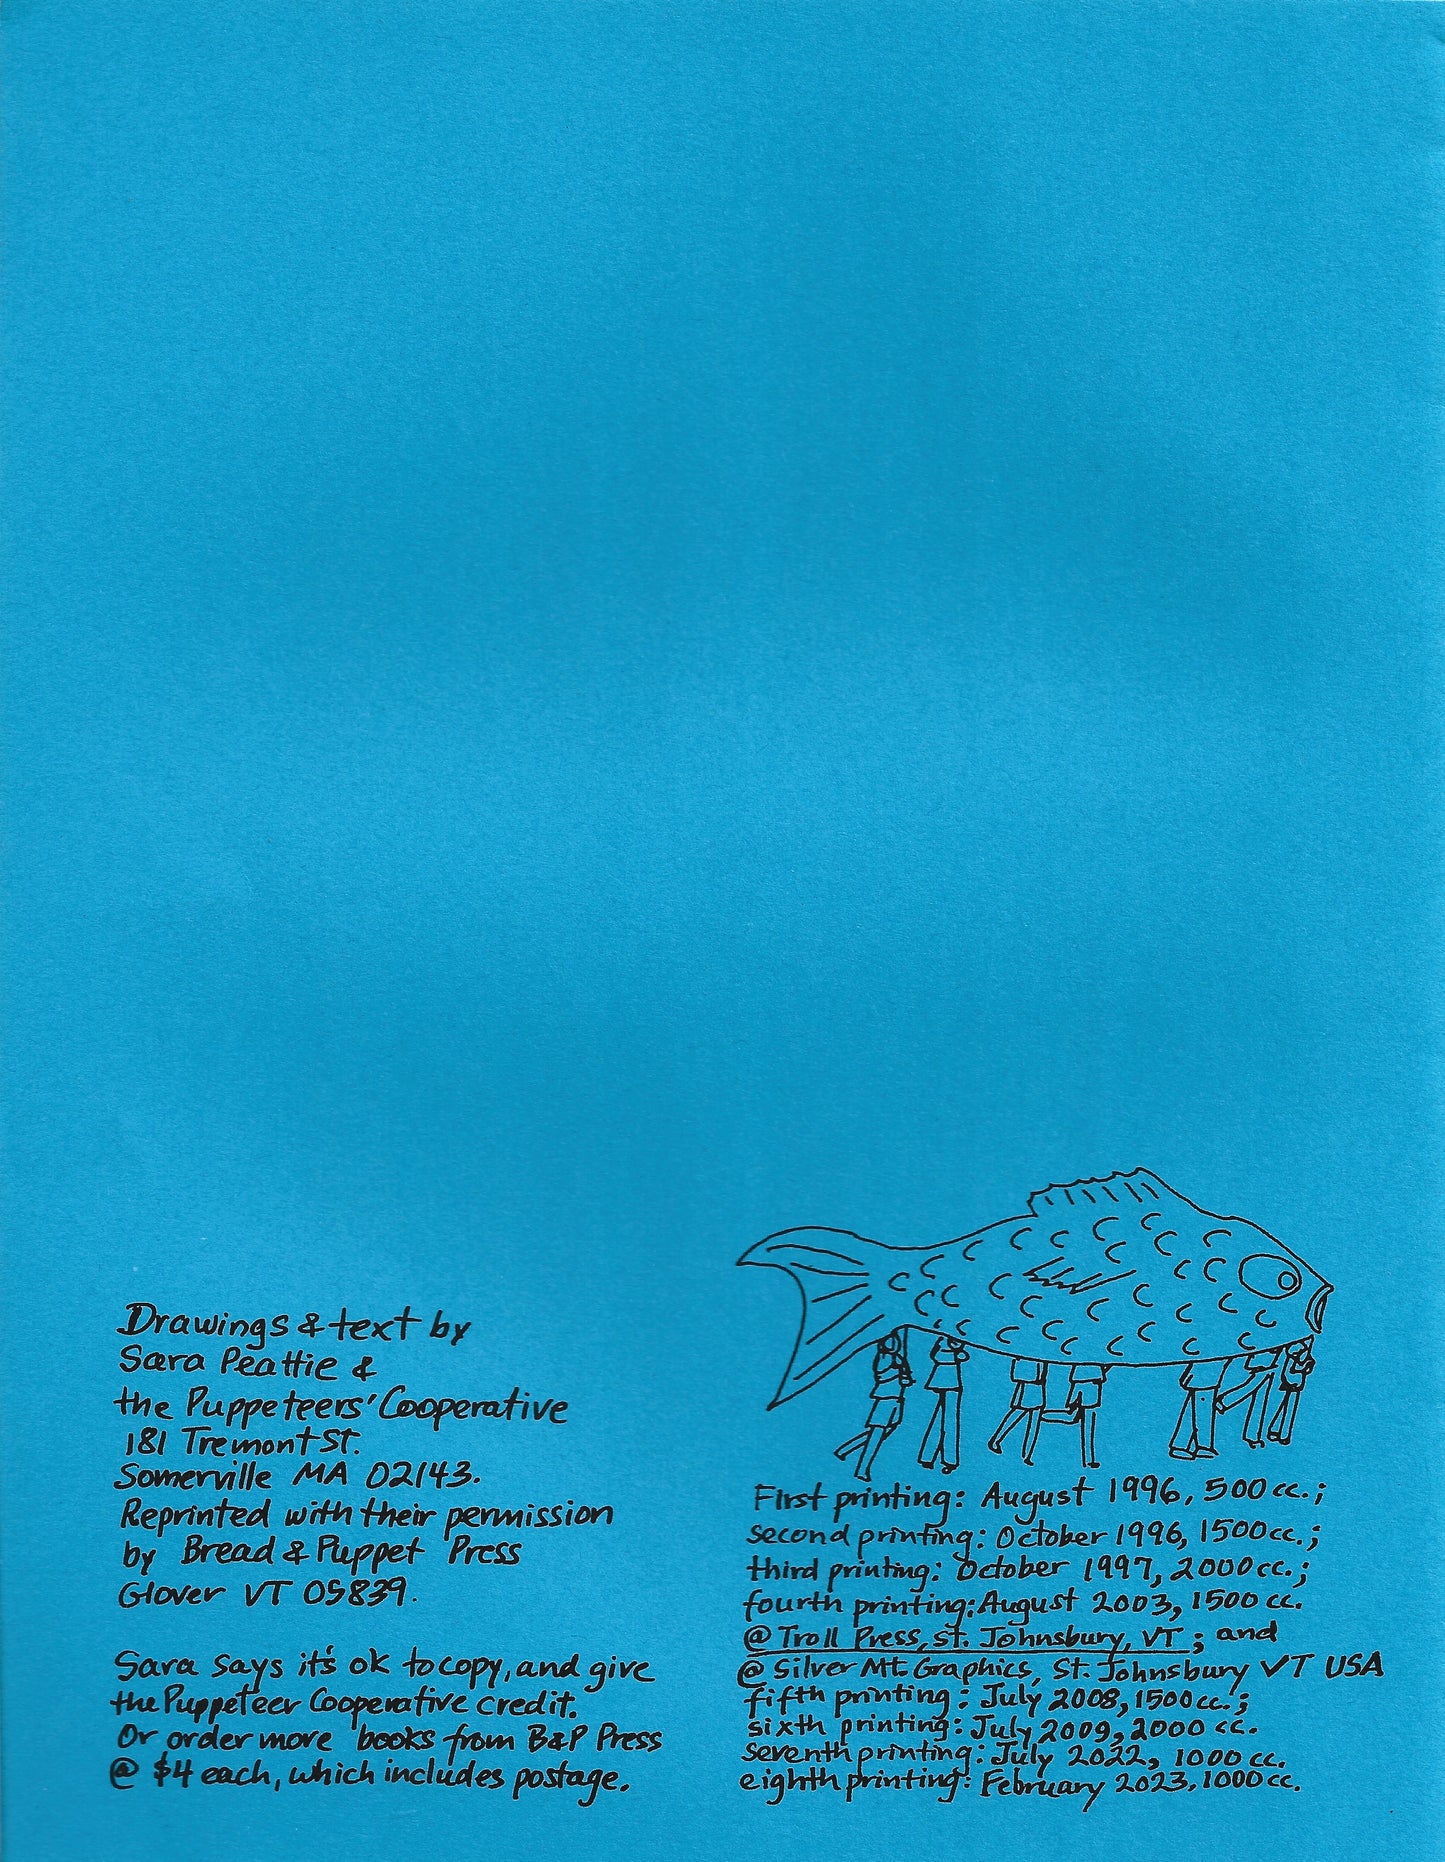 Drawings & text by
Sara Peattie &
the Puppeteers' Cooperative
181 Tremont St.
Somerville MA 02143.
Reprinted with their permission
by Bread & Puppet Press
Glover VT 05839.
Sara says it's ok to copy, and give
the Puppeteer Cooperative credit.
Or order more books from B&P Press
@ $4 each, which includes postage.
First printing: August 1996, 500 cc.;
second printing: October 1996, 1500 cc.;
third printing: October 1997, 2000 cc.;
fourth printing: August 2003, 1500 cc.
@ Troll Press, St. Johnsbury, VT; and
@ Silver Mt. Graphics, St. Johnsbury VT USA
fifth printing: July 2008, 1500 cc.;
sixth printing: July, 2009, 2000 cc.
seventh printing: July 2022, 1000 cc.
eighth printing: February 2023, 1000 cc.